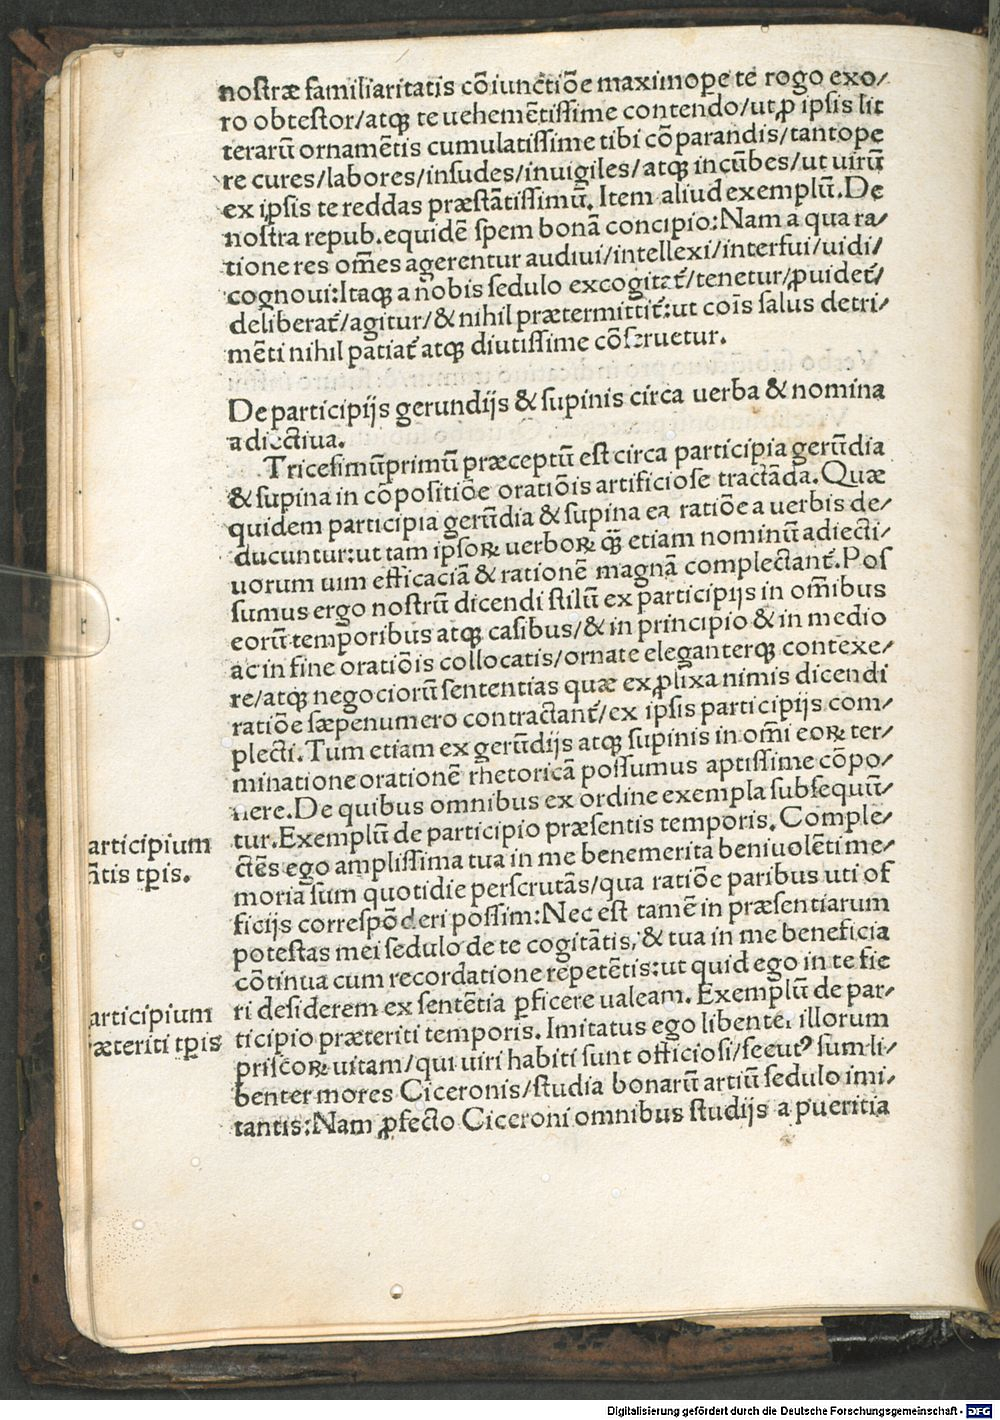 nostræ familiaritatis cōiunctiōe maximopꝑe te rogo exo/
ro obtestor/atqꝫ te uehemētissime contendo/ut ꝓ ipsis lit
terarū ornamētis cumulatissime tibi cōparandis/tantope
re cures/labores/insudes/inuigiles/atqꝫ incūbes/ut uirū
ex ipsis te reddas præstātissimū. Item aliud exemplū. De
nostra repub. equidē spem bonā concipio: Nam a qua ra/
tione res om̄es agerentur audiui/intellexi/interfui/uidi/
cognoui: Itaqꝫ a nobis sedulo excogitat᷑/tenetur/ꝓuidet᷑/
deliberat᷑/agitur/& nihil prætermittit᷑: ut cōis salus detri/
mēti nihil patiat᷑ atqꝫ diutissime cōseruetur.
De participijs gerundijs & supinis circa uerba & nomina
adiectiua.
Tricesimūprimū præceptū est circa participia gerūdia
& supina in cōpositiōe oratiōis artificiose tractāda. Quæ
quidem participia gerūdia & supina ea ratiōe a uerbis de/
ducuntur: ut tam ipsoꝝ uerboꝝ qꝫ etiam nominū adiecti/
uorum uim efficaciā & rationē magnā complectant᷑. Pos
sumus ergo nostrū dicendi stilū ex participijs in om̄ibus
eorū temporibus atqꝫ casibus/& in principio & in medio
ac in fine oratiōis collocatis/ornate eleganterqꝫ contexe/
re/atqꝫ negociorū sententias quæ ex ꝓlixa nimis dicendi
ratiōe sæpenumero contractant᷑/ex ipsis participijs com/
plecti. Tum etiam ex gerūdijs atqꝫ supinis in om̄i eoꝝ ter/
minatione orationē rhetoricā possumus aptissime cōpo/
nere. De quibus omnibus ex ordine exempla subsequū/
tur. Exemplū de participio præsentis temporis. Comple/
ctēs ego amplissima tua in me benemerita beniuolēti me/
moria sum quotidie perscrutās/qua ratiōe paribus uti of
ficijs correspōderi possim: Nec est tamē in præsentiarum
potestas mei sedulo de te cogitātis, & tua in me beneficia
cōtinua cum recordatione repetētis: ut quid ego in te fie
ri desiderem ex sentētia ꝑficere ualeam. Exemplū de par/
ticipio præteriti temporis. Imitatus ego libenter illorum
priscoꝝ uitam/qui uiri habiti sunt officiosi/secutꝰ sum li/
benter mores Ciceronis/studia bonarū artiū sedulo imi/
tantis: Nam ꝓfecto Ciceroni omnibus studijs a pueritia
articipium
ātis tꝑis.
articipium
ræteriti tꝑis
Digitalisierung gefördert durch die Deutsche Forschungsgemeinschaft - DFG